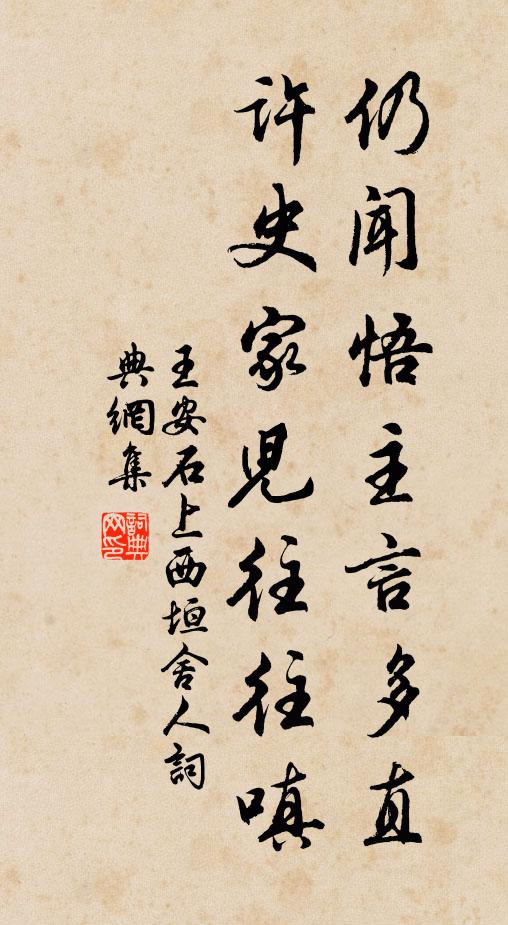 仍聞悟主言多直
許史家兒往往嗔
王安石上西垣舍人詞
典網集
詞典網印